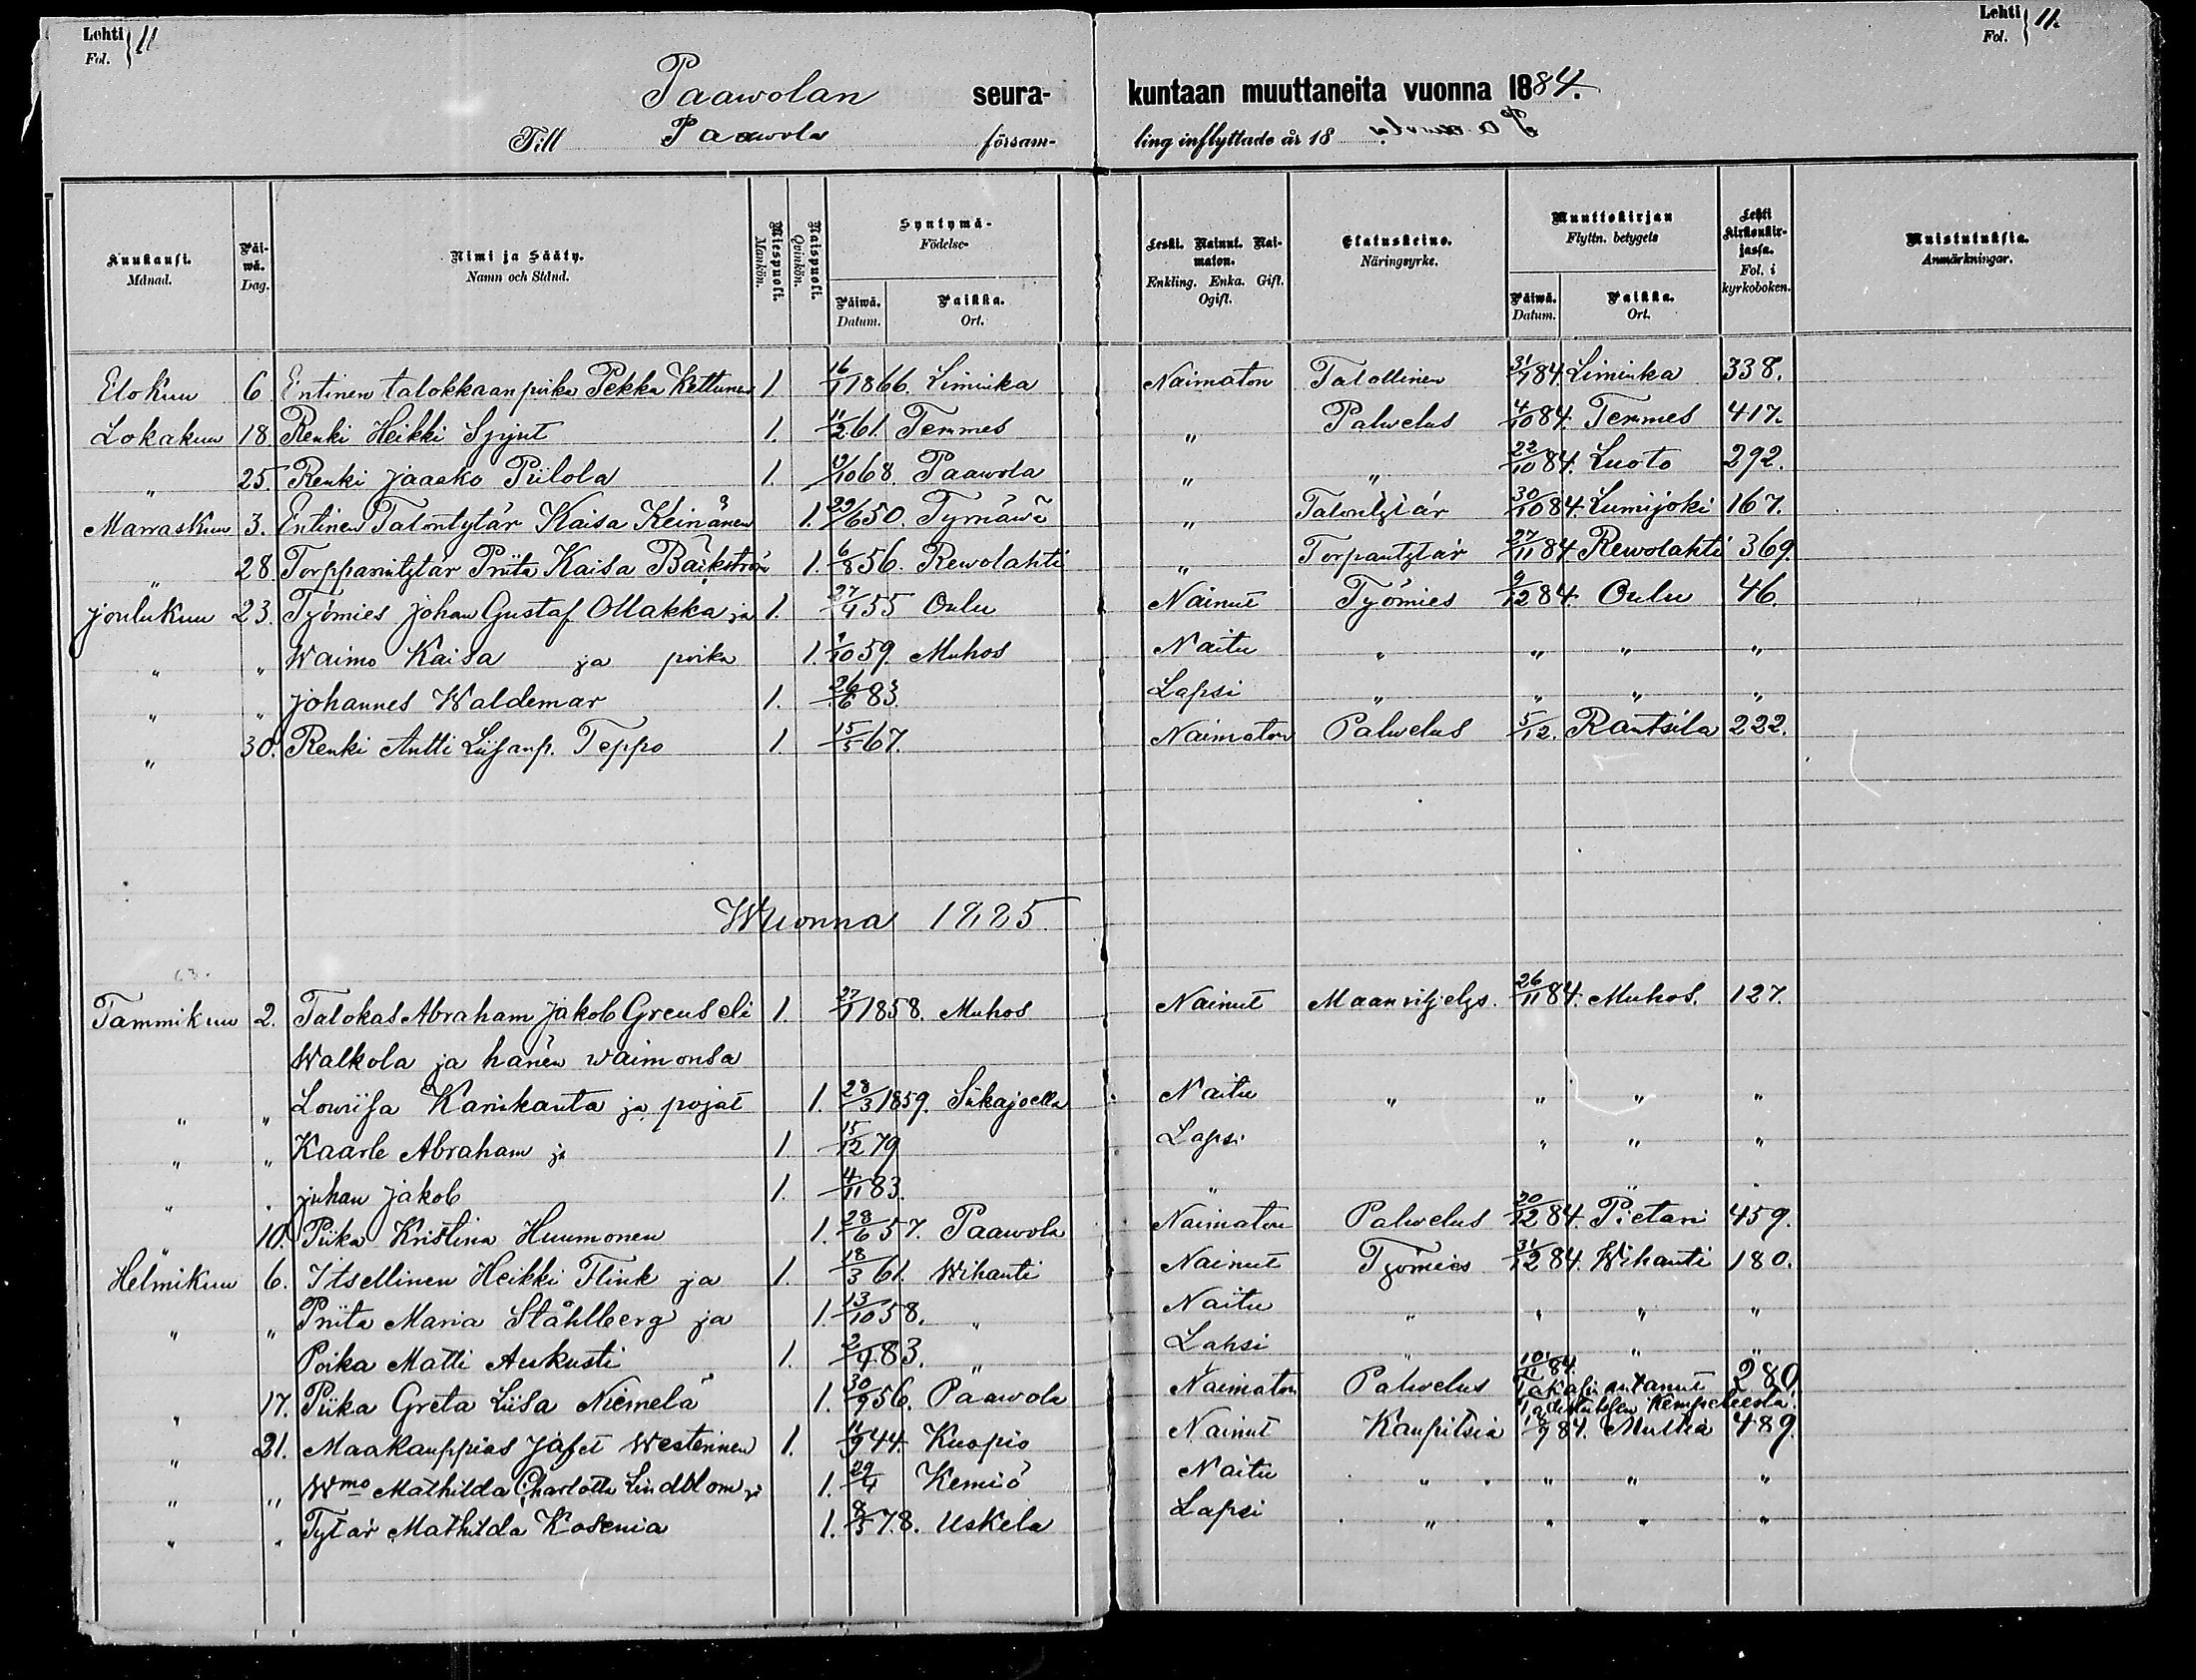 Lehti Fol. } 11
Lehti Fol. } 11.
Paawolan seura-kuntaan muuttaneita vuonna 1884.
Till Paawola försam-ling inflyttade år 18 .
Kuukausi. Månad. Päi-wä. Dag. Nimi ja Sääty. Namn och Stånd. Miespuoli. Mankön. Waispuoli. Qvinkön. Syntymä- Födelse- Päiwä. Datum. Paikka. Ort. Leski. Nainut. Nai-maton. Enkling. Enka. Gift. Ogift. Elatuskeino. Näringsyrke. Muuttokirjan Flyttn. betygets Päiwä. Datum. Paikka. Ort. Lehti Kirkonkir-jassa. Fol. i kyrkoboken. Muistutuksia. Anmärkningar.
Elokuu 6 Entinen talokkaan poika Pekka Kettunen 1. 16/1 1866. Liminka Naimaton Talollinen 31/7 84. Liminka 338.
Lokakuu 18 Renki Heikki 1. 11/2 61. Temmes " Palwelus 4/10 84. Temmes 417.
" 25. Renki Jaakko Piilola 1. /10 68. Paawola " " 22/10 84. Luoto 292.
Marraskuu 3. Entinen Talontytär Kaisa Keinänen 1. /6 50. Tyrnäwä " Talontytär 30/10 84. Lumijoki 167.
" 28 Torpparintytär Priita Kaisa Bäckström 1. 6/8 56. Rewolahti " Torpantytär 27/11 84 Rewolahti 369.
Joulukuu 23. Työmies Johan Gustaf Ollakka ja 1. 27/4 55 Oulu Nainut Työmies 9/12 84. Oulu 46.
" " Waimo Kaisa ja poika 1. /10 59. Muhos Naitu " " " "
" " Johannes Waldemar 1. 26/6 83. Lapsi " " " "
" 30. Renki Antti Liisanp. Teppo 1 15/5 67. Naimaton Palwelus 5/12. Rantsila 222.
Wuonna 1885.
Tammikuu 2. Talokas Abraham Jakob Greus eli 1. 27/1 1858. Muhos Nainut Maanviljelys. 26/11 84. Muhos. 127.
Walkola ja hänen waimonsa
" " Lowiisa Karinkanta ja pojat 1. 28/3 1859. Siikajoella Naitu " " " "
" " Kaarle Abraham ja 1. 15/12 79 Lapsi " " "
" " Juhan Jakob 1. 4/11 83. " " "
" 10. Piika Kristina Huumonen 1. 28/6 57. Paawola Naimaton Palwelus 20/12 84. Pietari 459.
Helmikuu 6. Itsellinen Heikki Flink ja 1. 18/3 61. Wihanti Nainut Työmies 31/12 84. Wihanti 180.
" " Priita Maria Ståhlberg ja 1. 13/10 58. " Naitu " " " "
Poika Matti Aukusti 1. 2/9 83. " Lapsi " " "
" 17. Piika Greta Liisa Niemelä 1. 30/9 56. Paawola Naimaton Palwelus 10/11 84. Takasin antanut Todistuksen Kempeleestä. 280.
" 21. Maakauppias Jafet Westerinen 1. 11/9 44. Kuopio Nainut Kaupitsia /9 84. Multia 489.
" " Wmo Mathilda Charlotta Lindblom ja 1. 29/4 Kemiö Naitu " " " "
" " Tytär Mathilda Kosenia 1. 8/5 78. Uskela Lapsi " " " "